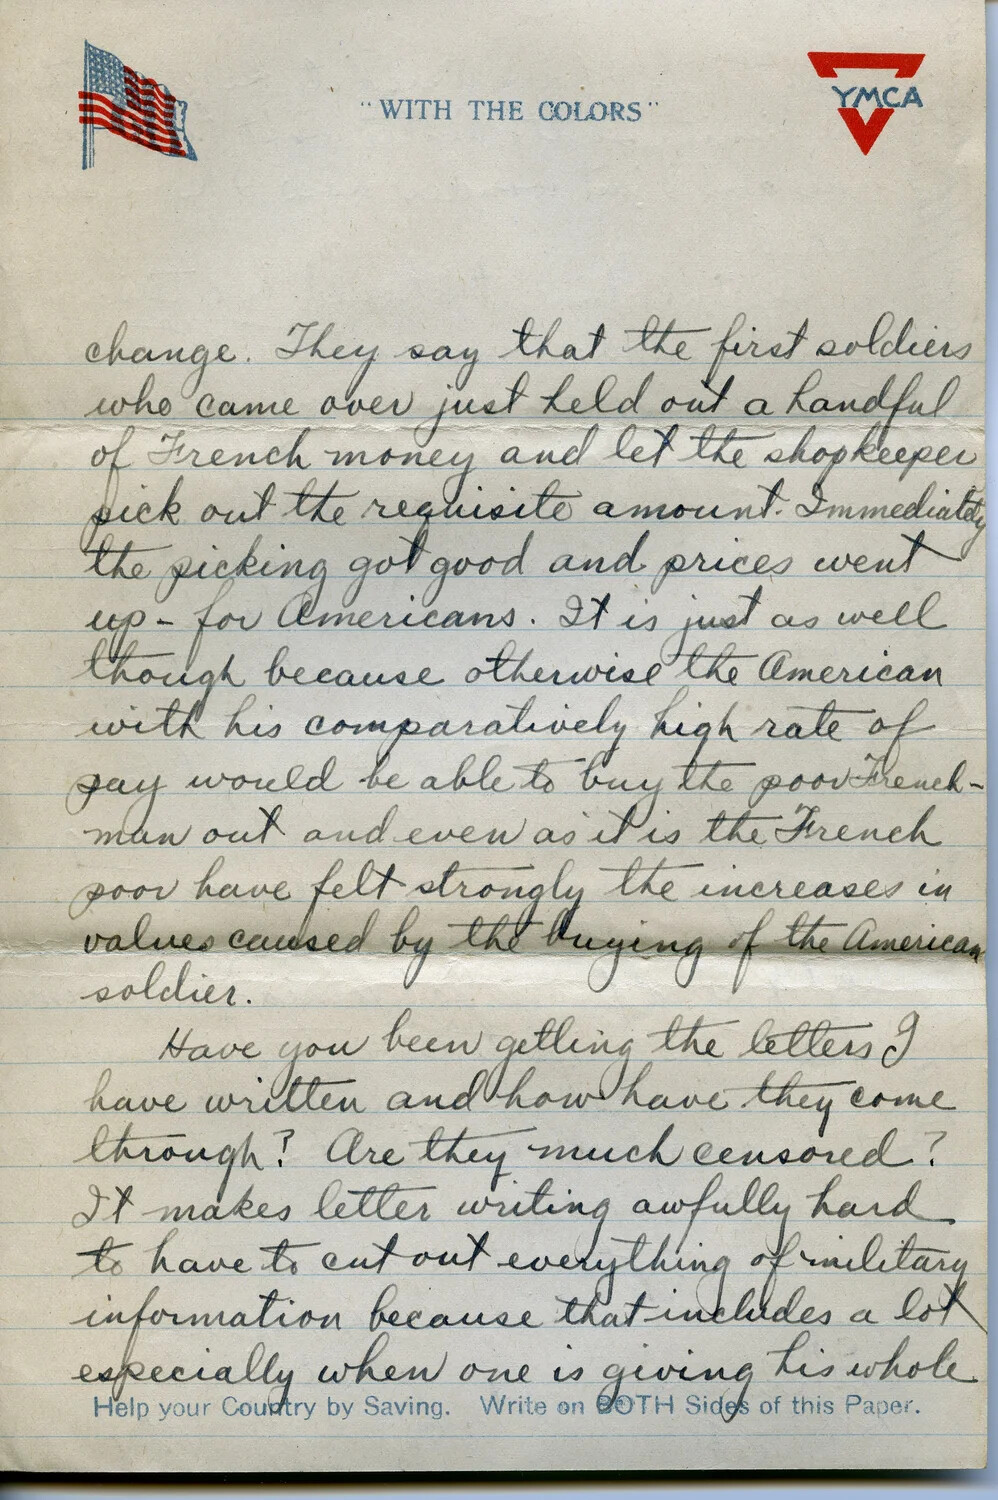 "WITH THE COLORS"
YMCA
change. They say that the first soldiers
who came over just held out a handful
of French money and let the shopkeeper
pick out the requisite amount. Immediately
the picking got good and prices went
up - for Americans. It is just as well
though because otherwise the American
with his comparatively high rate of
pay would be able to buy the poor French-
man out and even as it is the French
poor have felt strongly the increases in
values caused by the buying of the American
soldier.
Have you been getting the letters I
have written and how have they come
through? Are they much censored?
It makes letter writing awfully hard
to have to cut out everything of military
information because that includes a lot
especially when one is giving his whole
Help your Country by Saving. Write on BOTH Sides of this Paper.